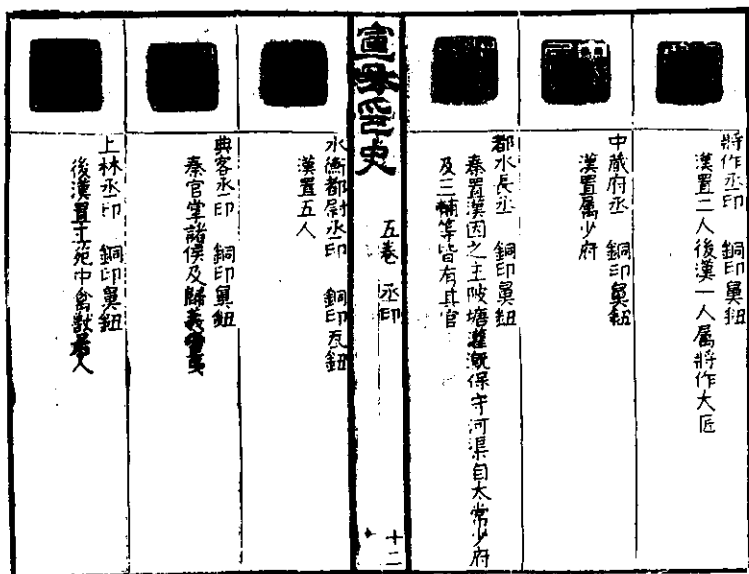 將作丞印　銅印鼻鈕
漢置二人後漢一人屬將作大匠
中藏府丞　銅印鼻鈕
漢置屬少府
都水長丞　銅印鼻鈕
秦置漢因之主陂塘灌溉保守河渠自太常少府
及三輔等皆有其官
宣和印史
五卷　丞印
十二
水衡都尉丞印　銅印瓦鈕
漢置五人
典客丞印　銅印鼻鈕
秦官掌諸侯及歸義蠻夷
上林丞印　銅印鼻鈕
後漢置主苑中禽獸